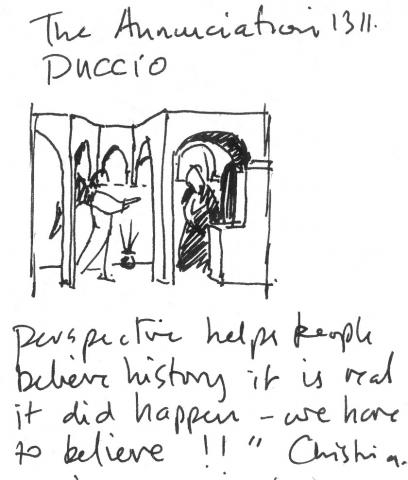 The Annunciation 1311.
DUCCIO
perspective helps people
believe history it is real
it did happen - we have
to believe !! "